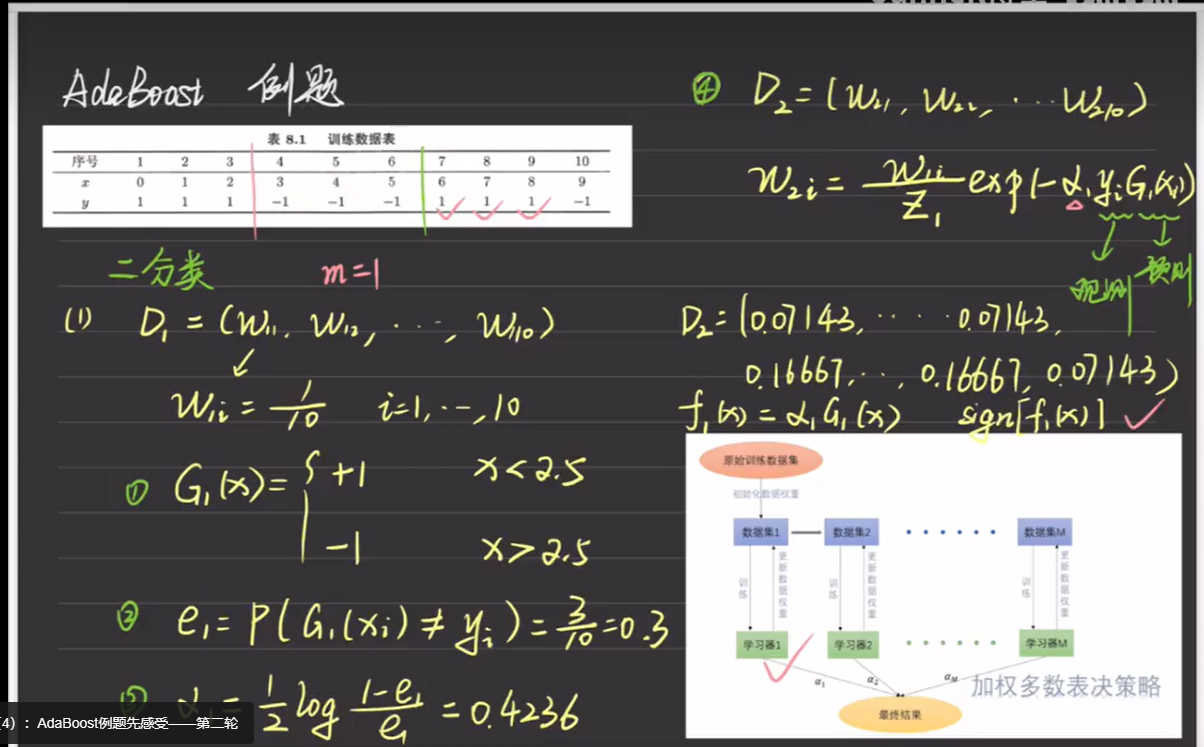 AdaBoost 例题
表 8.1 训练数据表
序号 1 2 3 4 5 6 7 8 9 10
x 0 1 2 3 4 5 6 7 8 9
y 1 1 1 -1 -1 -1 1 1 1 -1
二分类 m=1
(1) D₁ = (w₁₁, w₁₂, ⋯, w₁₁₀)
w₁ᵢ = 1/10 i=1, ⋯, 10
① G₁(x) = { +1 x < 2.5
-1 x > 2.5
② e₁ = P(G₁(xᵢ) ≠ yᵢ) = 3/10 = 0.3
③ α₁ = 1/2 log (1-e₁)/e₁ = 0.4236
4）：AdaBoost例题先感受——第二轮
④ D₂ = (w₂₁, w₂₂, ⋯ w₂₁₀)
w₂ᵢ = w₁ᵢ/Z₁ exp(-α₁ yᵢ G₁(xᵢ))
观测 预测
D₂ = (0.07143, ⋯ 0.07143,
0.16667, ⋯, 0.16667, 0.07143)
f₁(x) = α₁ G₁(x) sign[f₁(x)]
原始训练数据集
初始化数据权重
数据集1 数据集2 数据集M
训练 更新数据权重 训练 更新数据权重 训练 更新数据权重
学习器1 学习器2 学习器M
α₁ α₂ α_M 加权多数表决策略
最终结果